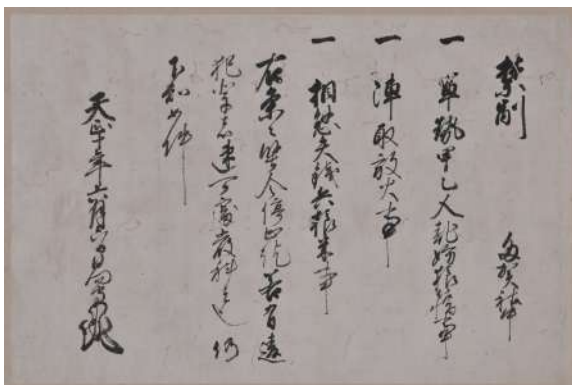 禁制 多賀社
一 軍勢甲乙人乱妨狼藉事
一 陣取放火事
一 相懸矢銭兵粮米事
右条々堅令停止訖若有違
犯輩者速可處厳科者也仍
下知如件
天正十年六月六日日向守